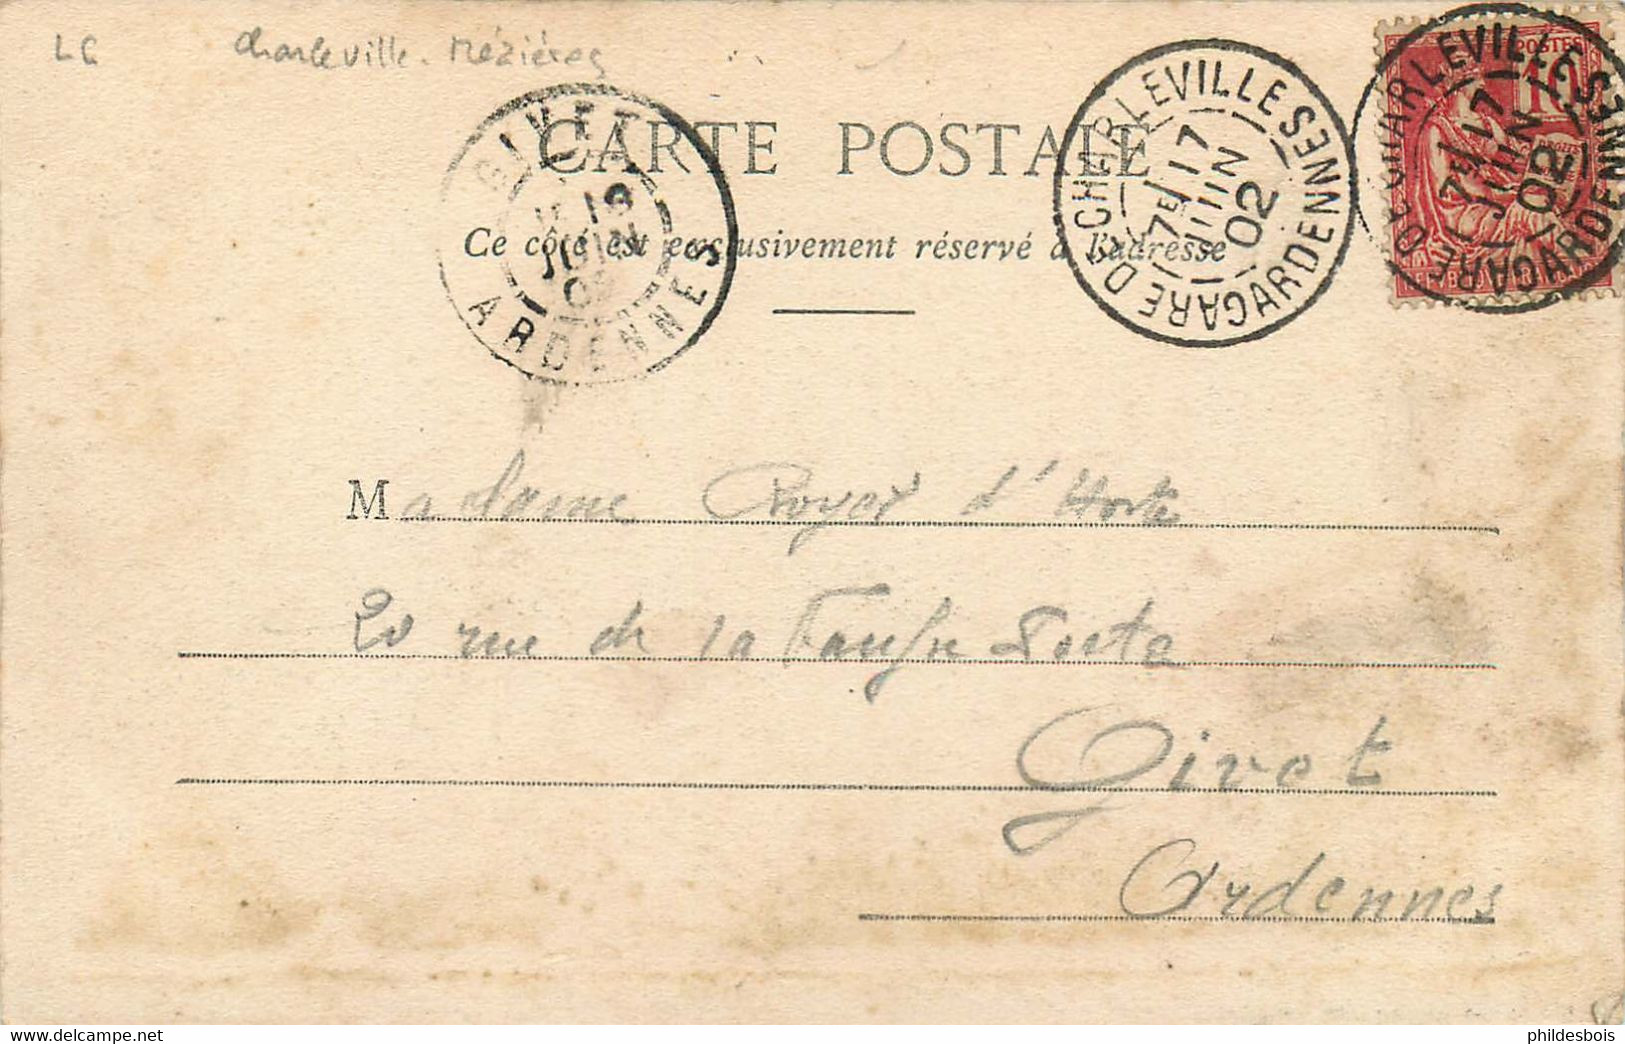 LC Charleville. Mézières
CARTE POSTALE
Ce côté est exclusivement réservé à l'adresse
GIVET
JUIN
02
ARDENNES
GARE DE CHARLEVILLE
7E/17
JUIN
02
ARDENNES
POSTES
10
GARE DE CHARLEVILLE
7E/17
JUIN
02
ARDENNES
Madame Royer d'Horte
20 rue de la
Givet
Ardennes
phildesbois